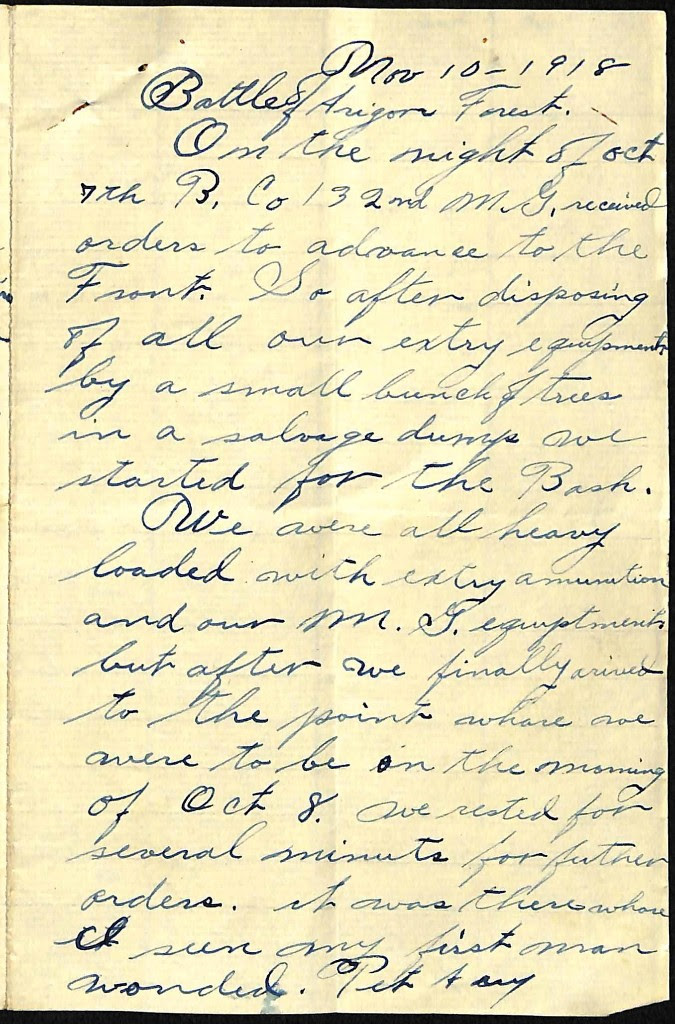 Nov 10-1918
Battle of Arigon Forest.
On the night of oct
7th B. Co 132nd M.G. received
orders to advance to the
Front. So after disposing
of all our extry equipment
by a small bunch of trees
in a salvage dump we
started for the Bash.
We were all heavy
loaded with extry amunition
and our M. G. equiptments
but after we finally arived
to the point whare we
were to be on the morning
of Oct 8. we rested for
several minuts for futher
orders. it was there whare
I seen my first man
wonded. Pet